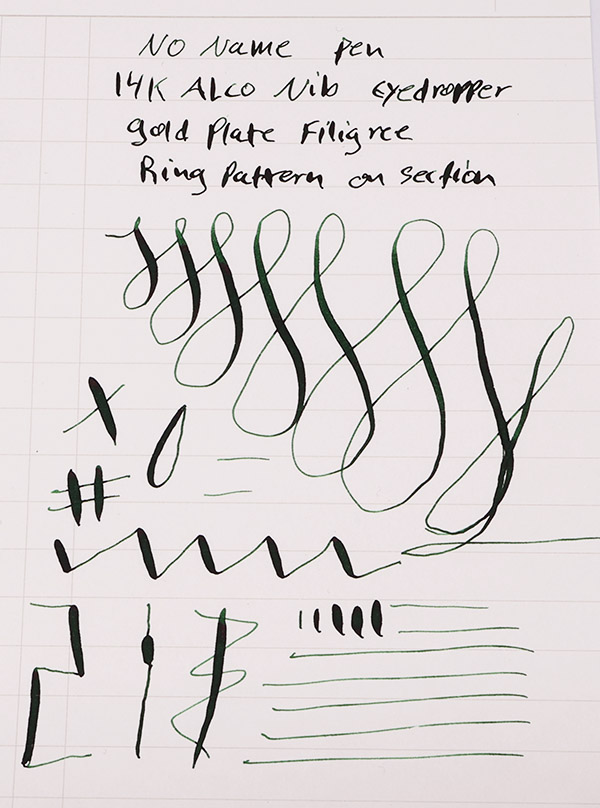 No Name pen
14K ALCO Nib eyedropper
gold Plate Filigree
Ring Pattern on section